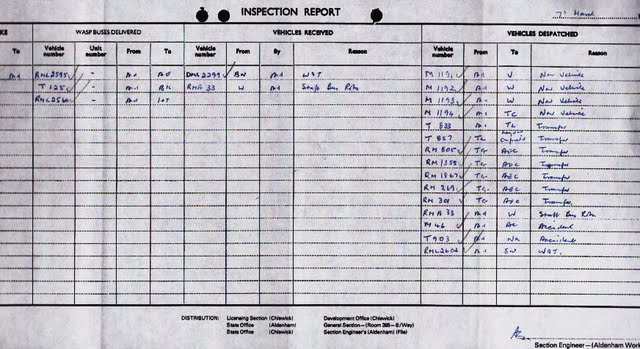 INSPECTION REPORT
7' March
KE WASP BUSES DELIVERED VEHICLES RECEIVED VEHICLES DESPATCHED
To Vehicle number Unit number From To Vehicle number From By Reason Vehicle number From To Reason
A1 RML2595 - A1 AE DML2299 BN A1 WBT M 1191 A1 V New Vehicle
T 125 - A1 BK RMA 33 W A1 Staff Bus M 1192 A1 W New Vehicle
RML2560 - A1 M 1193 A1 W New Vehicle
M 1194 A1 TC New Vehicle
T 833 A1 TL Transfer
T 857 TL Transfer
RM 805 TC Transfer
RM 1355 TC Transfer
RM 1867 TC AEC Transfer
RM 269 TC AEC Transfer
RM 301 TC AEC Transfer
RMA 33 A1 W Staff Bus
M 46 A1 Accident
T 903 A1 NX Accident
SW WBT.
DISTRIBUTION: Licensing Section (Chiswick) Development Office (Chiswick)
State Office (Aldenham) General Section—(Room 395—B/Way)
State Office (Chiswick) Section Engineer's (Aldenham) (File)
Section Engineer—(Aldenham Work